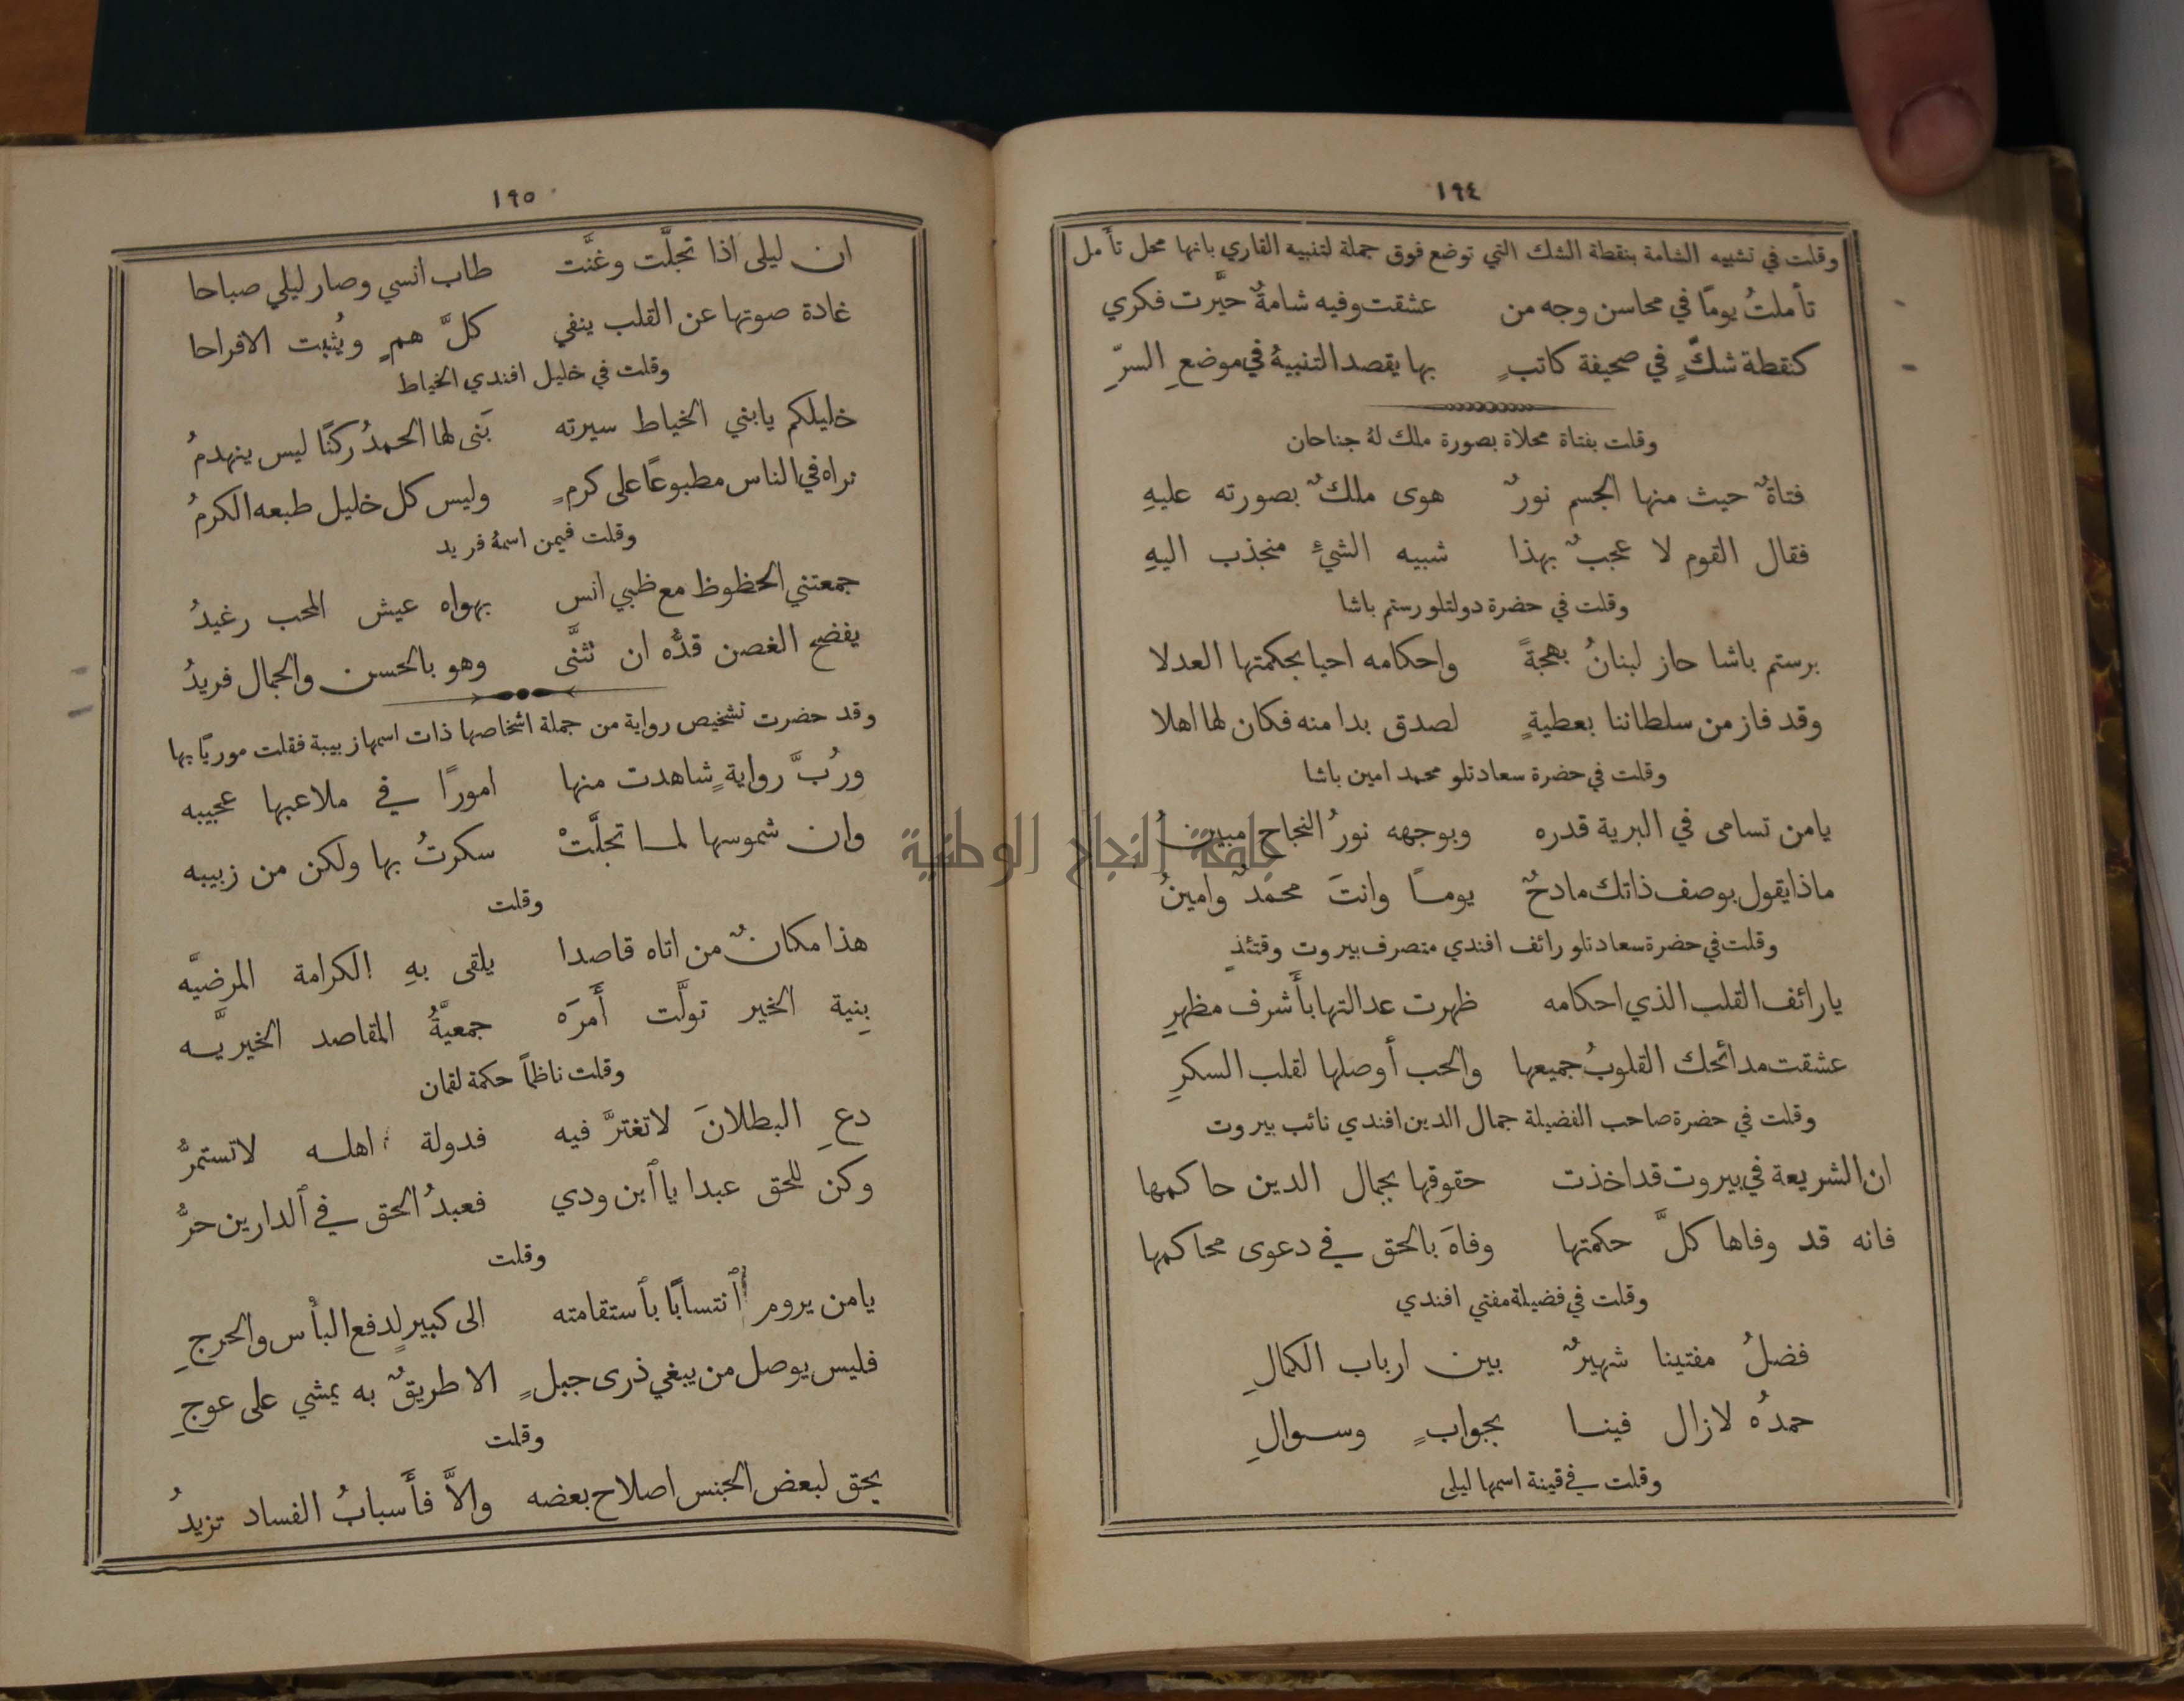 ١٩٤
وقلت في تشبيه الشامة بنقطة الشك التي توضع فوق جملة لتنبيه القاري بانها محل تأمل
تأملتُ يومًا في محاسن وجه من عشقت وفيه شامةٌ حيَّرت فكري
كنقطة شكٍّ في صحيفة كاتبٍ بها يقصد التنبيهُ في موضعِ السرِّ
وقلت بفتاة محلاة بصورة ملك لهُ جناحان
فتاةٌ حيث منها الجسم نورٌ هوى ملكٌ بصورته عليهِ
فقال القوم لا عجبٌ بهذا شبيه الشيْءِ منجذب اليهِ
وقلت في حضرة دولتلو رستم باشا
برستم باشا حاز لبنانُ بهجةً واحكامه احيا بحكمتها العدلا
وقد فاز من سلطاننا بعطيةٍ لصدق بدا منه فكان لها اهلا
وقلت في حضرة سعادتلو محمد امين باشا
يامن تسامى في البرية قدره وبوجهه نورُ النجاح مبينُ
ماذا يقول بوصف ذاتك مادحٌ يومًا وانتَ محمدٌ وامينُ
وقلت في حضرة سعادتلو رائف افندي متصرف بيروت وقتئذٍ
يا رائف القلب الذي احكامه ظهرت عدالتها بأَشرف مظهرِ
عشقت مدائحك القلوبُ جميعها والحب أوصلها لقلب السكرِ
وقلت في حضرة صاحب الفضيلة جمال الدين افندي نائب بيروت
ان الشريعة في بيروت قد اخذت حقوقها بجمال الدين حاكمها
فانه قد وفاها كلَّ حكمتها وفاهَ بالحق في دعوى محاكمها
وقلت في فضيلة مفتي افندي
فضلُ مفتينا شهيرٌ بين ارباب الكمالِ
حمدُه لازال فينا بجوابٍ وسوالِ
وقلت في قينة اسمها ليلى
١٩٥
ان ليلى اذا تجلَّت وغنَّت طاب انسي وصار ليلي صباحا
غادة صوتها عن القلب ينفي كلَّ همٍ ويُثبت الافراحا
وقلت في خليل افندي الخياط
خليلكم يا بني الخياط سيرته بَنى لها الحمدُ ركنًا ليس ينهدمُ
نراه في الناس مطبوعًا على كرمٍ وليس كل خليل طبعه الكرمُ
وقلت فيمن اسمهُ فريد
جمعتني الحظوظ مع ظبي انس بهواه عيش المحب رغيدُ
يفضح الغصن قدُّه ان تثنَّى وهو بالحسن والجمال فريدُ
وقد حضرت تشخيص رواية من جملة اشخاصها ذات اسمها زبيبة فقلت موريًا بها
ورُبَّ روايةٍ شاهدت منها امورًا في ملاعبها عجيبه
وان شموسها لما تجلَّتْ سكرتُ بها ولكن من زبيبه
وقلت
هذا مكانٌ من اتاه قاصدا يلقى بهِ الكرامة المرضيَّه
بِنية الخير تولَّت أَمرَه جمعيَّةُ المقاصد الخيريَّه
وقلت ناظمًا حكمة لقمان
دعِ البطلانَ لاتغترَّ فيه فدولة اهله لاتستمرُّ
وكن للحق عبدا يا ٱبن ودي فعبدُ الحق في ٱلدارين حرُّ
وقلت
يامن يروم ٱنتسابًا بٱستقامته الى كبيرٍ لدفع البأْس والحرجِ
فليس يوصل من يبغي ذرى جبلٍ الا طريقٌ به يمشي على عوجِ
وقلت
يحق لبعض الجنس اصلاح بعضه والاَّ فأَسبابُ الفساد تزيدُ
جامعة النجاح الوطنية